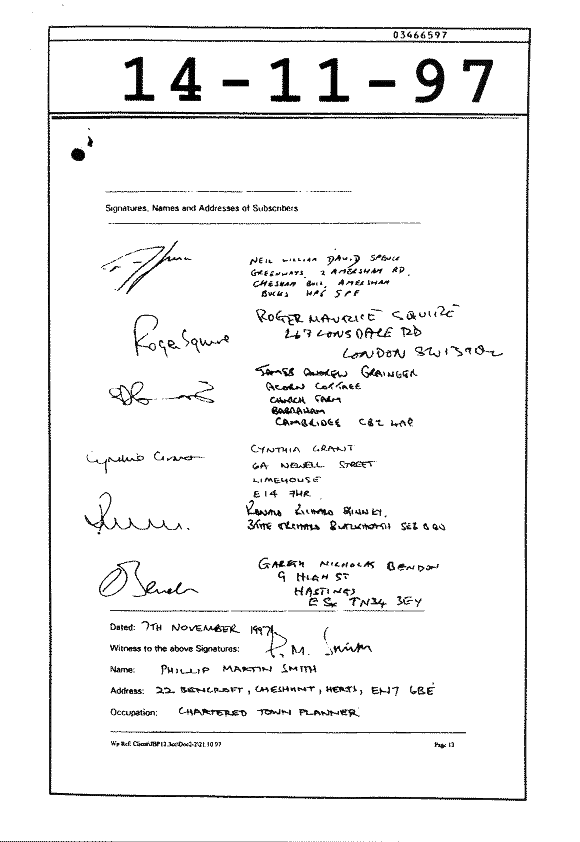 03466597
14-11-97
Signatures, Names and Addresses of Subscribers
NEIL WILLIAM DAVID SPENCE
GREENWAYS, 2 AMERSHAM RD,
CHESHAM BOIS, AMERSHAM
BUCKS HP6 5PE
ROGER MAURICE SQUIRE
Roger Squire
267 LONSDALE RD
LONDON SW13 9QL
JAMES ANDREW GRAINGER
ACORN COTTAGE
CHURCH FARM
BABRAHAM
CAMBRIDGE CB2 4AP
CYNTHIA GRANT
Cynthia Grant
6A NEWELL STREET
LIMEHOUSE
E14 7HR
RICHARD
BLACKHEATH SE3
GARETH NICHOLAS BENDON
9 HIGH ST
HASTINGS
E Sx TN34 3EY
Dated: 7TH NOVEMBER 1997
Witness to the above Signatures: P. M. Smith
Name: PHILLIP MARTIN SMITH
Address: 22 BENCROFT, CHESHUNT, HERTS, EN7 6BE
Occupation: CHARTERED TOWN PLANNER
Page 13